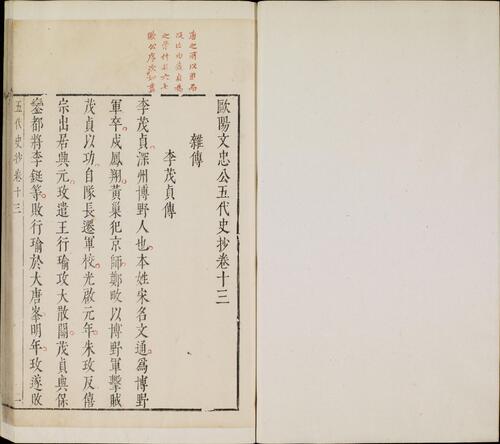 歐陽文忠公五代史抄卷十三
雜傳
李茂貞傳
李茂貞深州博野人也本姓宋名文通爲博野
軍卒戍鳳翔黃巢犯京師鄭畋以博野軍擊賊
茂貞以功自隊長遷軍校光啟元年朱玫反僖
宗出居興元玫遣王行瑜攻大散關茂貞與保
鑾都將李鋋等敗行瑜於大唐峯明年玫遂敗
五代史抄卷十三
一